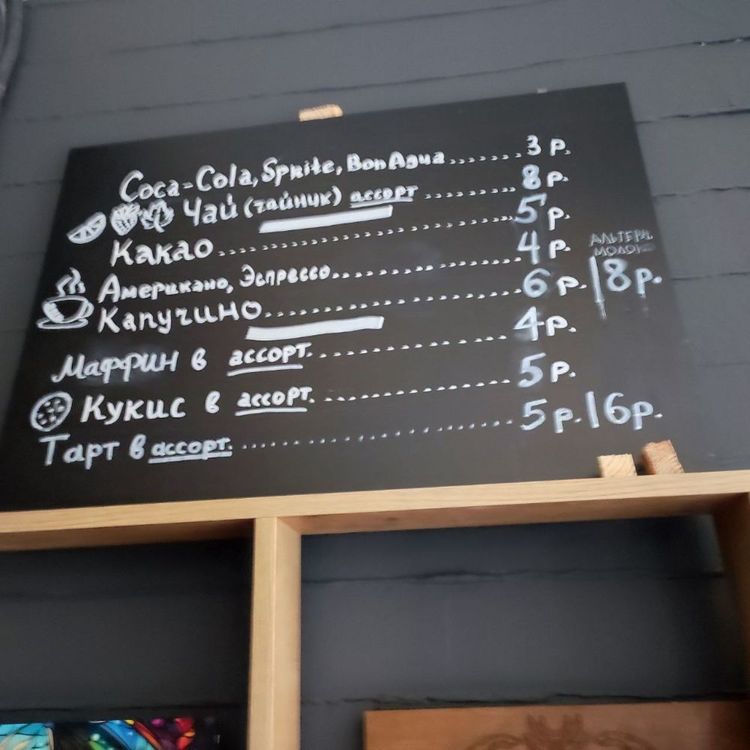 Coca-Cola, Sprite, BonAqua.......3 р.
Чай (чайник) ассорт.......8 р.
Какао..............................5 р.
Американо, Эспрессо..............4 р.
АЛЬТЕРН.
МОЛОКО
Капучино........................6 р. | 8 р.
Маффин в ассорт...................4 р.
Кукис в ассорт...................5 р.
Тарт в ассорт. ..................5 р. | 6 р.